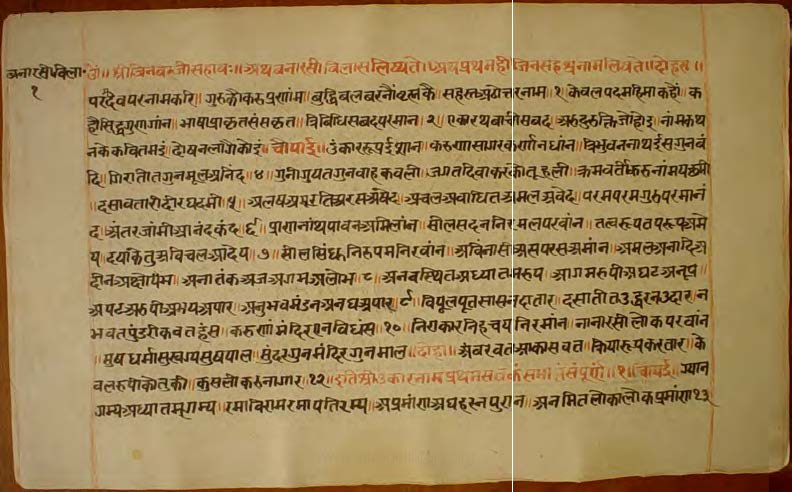 बनारसी विला॰
१
॥ श्री जिनवरजी सहायः॥ अथ बनारसी विलास लिख्यते। अथ प्रथमही जिनसहश्रनाम लिष्यते॥ दोहरा॥
परमदेव परनाम करि॥ गुरुकौ करुं प्रणाम॥ बुद्धिबल बरनौं ब्रह्मकै॥ सहस्त्र अठोत्तरनाम॥ १ केवल पद महिमा कहौं॥ क
हौ सिद्ध गुणगांन॥ भाषा प्राकृत संसकृत॥ त्रिबिधि सबद परमान॥ २॥ एकारथवाची सबद॥ अरु दुरुक्ति जो होइ॥ नाम कथ
नके कवितमइं॥ दोष न लागै कोइ॥ चौपाई॥ उंकाररूप ईशान॥ करुणासागर कर्णानधांन॥ त्रिभुवननाथ ईस गुनवं
दि॥ गिरातीत गुनमूल अनिंद॥ ४॥ गुनी गुपत गुनवाहक बली॥ जगतदिवाकर कौतूहली॥ क्रमवर्ती करुनांमय क्षमी
॥ दसावतारी दीरघ दमी॥ ५॥ अलष अमूरति अरस अषेद॥ अचल अबाधित अमल अवेद॥ परम परमगुरु परमानं
द॥ अंतरजांमी आनंदकंद॥ ६॥ प्राणनाथ पावन अमिलांन॥ सील सदन निरमल परवांन॥ तत्वरूप तपरूप अमे
य॥ दयाकेतु अविचल आदेय॥ ७॥ सीलसिंधु निरुपम निरवांन॥ अविनासी असपरस अमांन॥ अमल अनादि अ
दीन अक्षोभ॥ अनातंक अज अगम अलोभ॥ ८॥ अनवस्थित अध्यातमरूप॥ आगमरूपी अघट अनूप॥
अपट अरूपी अभय अपार॥ अनुभवमंडन अनघ अपार॥ ९॥ विपुलपूतसासन दातार॥ दसातीत उद्धरन उदार॥ न
भवत पुंडरीकवत हंस॥ करुणांमंदिर एनविधंस॥ १०॥ निराकार निहचय निरमांन॥ नानारसी लोक परवांन
॥ सुषधर्मी सुखग्य सुषपाल॥ सुंदर गुनमंदिर गुनमाल॥ दोहा॥ अंबरवत आकासवत॥ क्रियारूप करतार॥ के
वलरूपी कौतुकी॥ कुसली करुनागार॥ १२॥ इति श्री उंकारनाम प्रथम सतक समाप्त संपूर्ण॥ १॥ चौपई॥ ग्यान
गम्य अध्यातमगम्य॥ रमाविराम रमापतिरम्य॥ अप्रमांण अघहरन पुरान॥ अनमित लोकालोक प्रमांण॥ १३